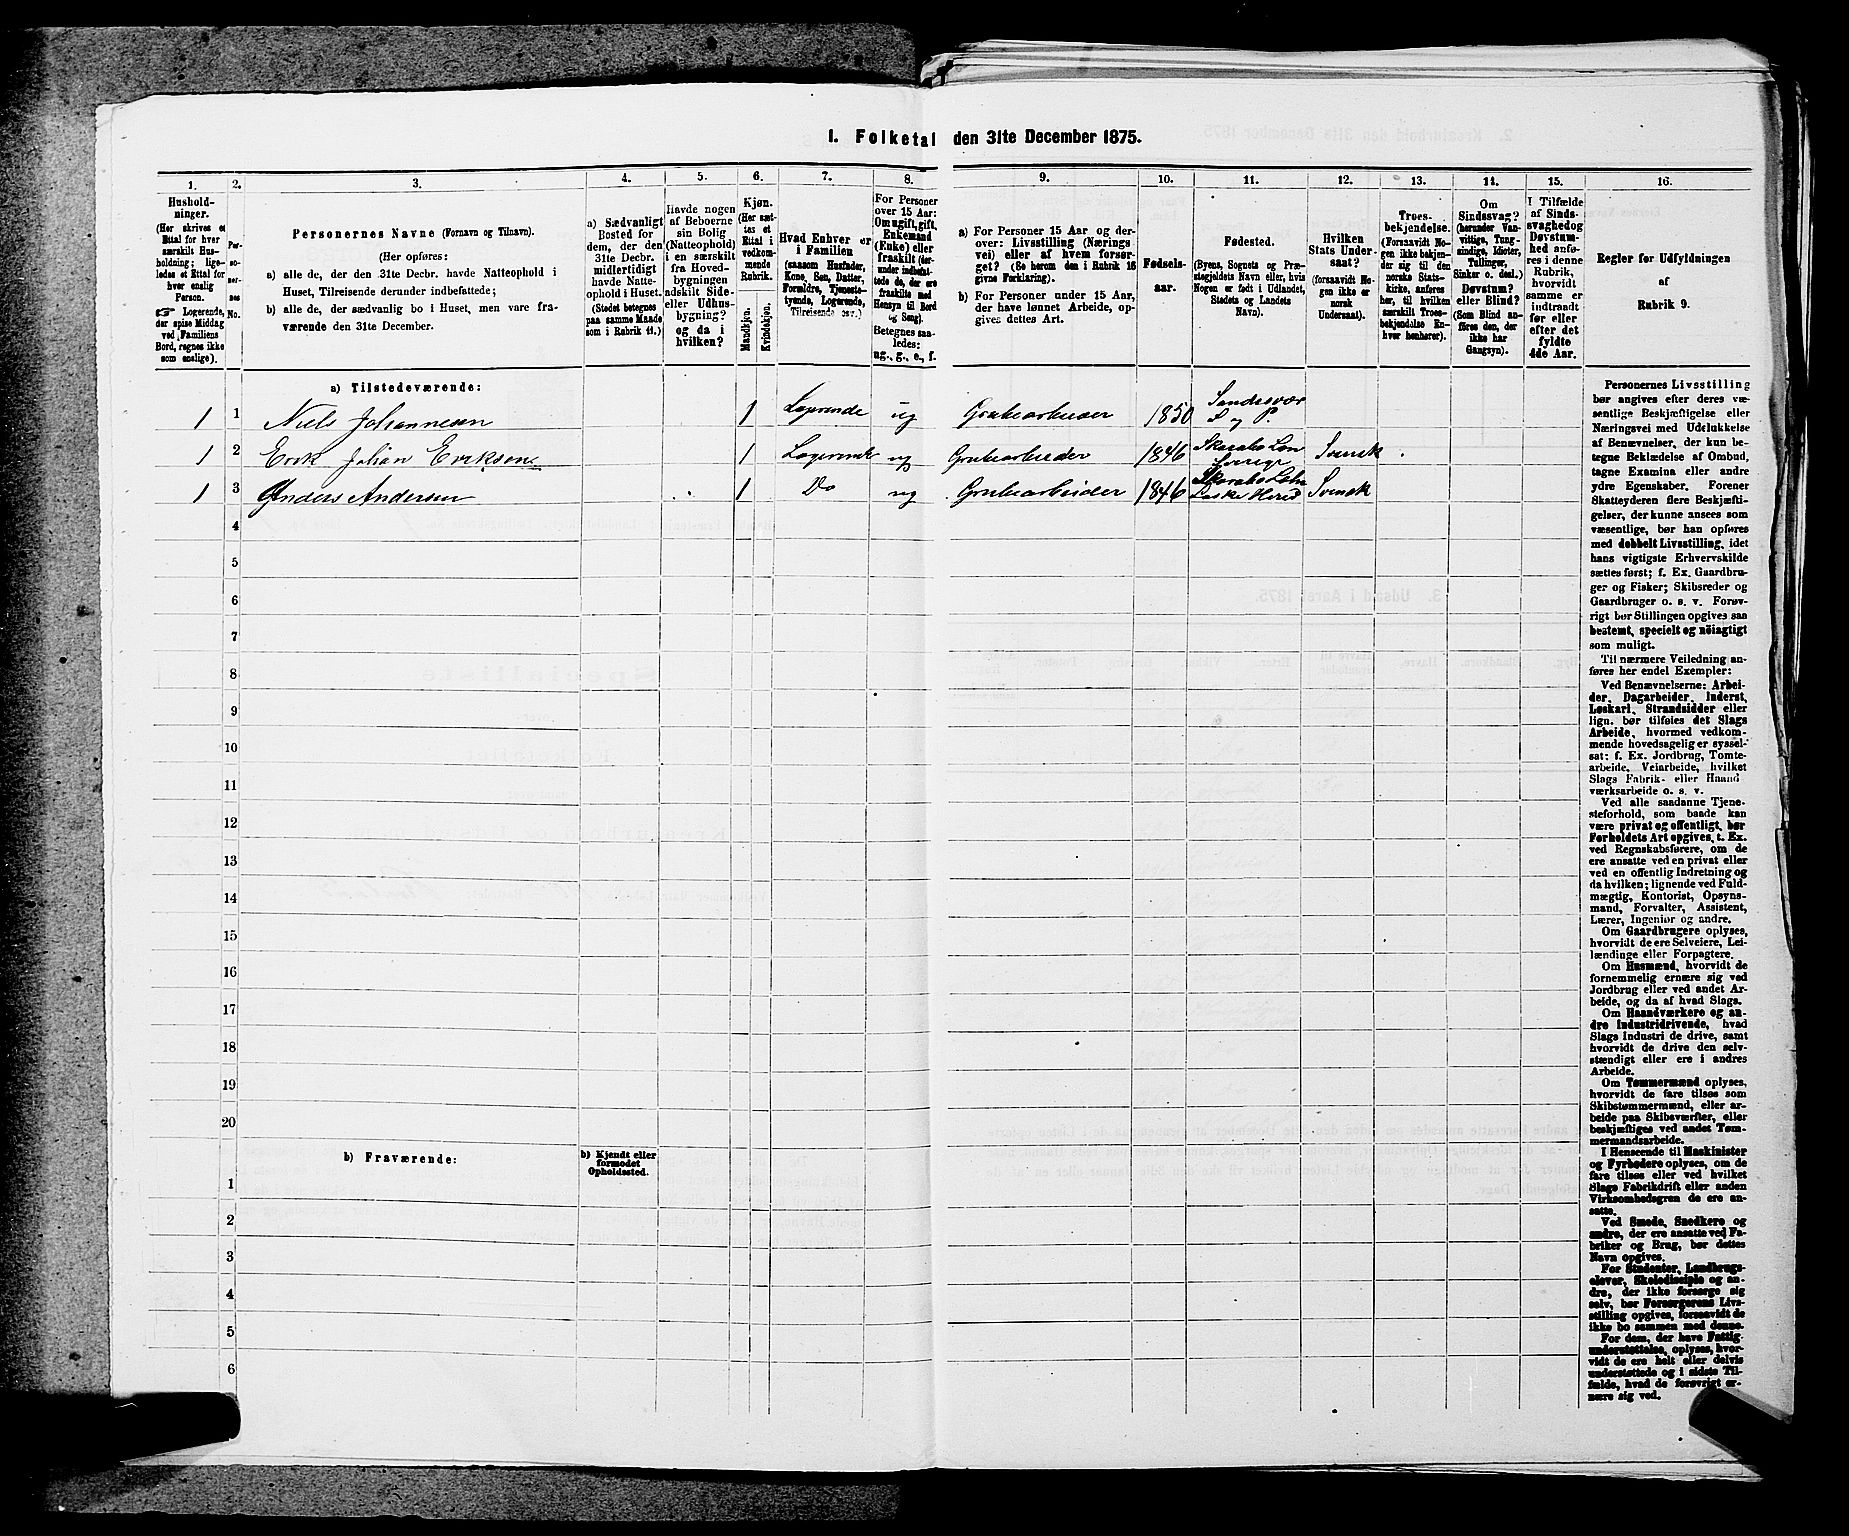 1. Folketal den 31te December 1875.
1.
2.
3.
4.
5.
6.
7.
8.
9.
10.
11.
12.
13.
14.
15.
16.
Hushold-
ninger.
(Her skrives et
Ettal for hver
særskilt Hus-
holdning; lige-
ledes et Ettal for
hver enslig
Person.
☞ Logerende,
der spise Middag
ved Familiens
Bord, regnes ikke
som enslige).
Per-
so-
ner-
nes
No.
Personernes Navne (Fornavn og Tilnavn).
(Her opføres:
a) alle de, der den 31te Decbr. havde Natteophold i
Huset, Tilreisende derunder indbefattede;
b) alle de, der sædvanlig bo i Huset, men vare fra-
værende den 31te December.
a) Sædvanligt
Bosted for
dem, der den
31te Decbr.
midlertidigt
havde Natte-
ophold i Huset.
(Stedet betegnes
paa samme Maade
som i Rubrik 11.)
Havde nogen
af Beboerne
sin Bolig
(Natteophold)
i en særskilt
fra Hoved-
bygningen
adskilt Side-
eller Udhus-
bygning?
og da i
hvilken?
Kjøn.
(Her sæt-
tes et
Ettal i
vedkom-
mende
Rubrik.
Mandkjøn.
Kvindekjøn.
Hvad Enhver er
i Familien
(saasom Husfader,
Kone, Søn, Datter,
Forældre, Tjeneste-
tyende, Logerende,
Tilreisende osv.)
For Personer
over 15 Aar:
Om ugift, gift,
Enkemand
(Enke) eller
fraskilt (der-
under indbefat-
tede de, der ere
fraskilte med
Hensyn til Bord
og Seng).
Betegnes saa-
ledes:
ug., g., e., f.
a) For Personer 15 Aar og der-
over: Livsstilling (Nærings
vei) eller af hvem forsør-
get? (Se herom den i Rubrik 16
givne Forklaring).
b) For Personer under 15 Aar,
der have lønnet Arbeide, op-
gives dettes Art.
Fødsels-
aar.
Fødested.
(Byens, Sognets og Præ-
stegjeldets Navn eller, hvis
Nogen er født i Udlandet,
Stedets og Landets
Navn).
Hvilken
Stats Under-
saat?
(forsaavidt No-
gen ikke er
norsk
Undersaat).
Troes-
bekjendelse.
(Forsaavidt No-
gen ikke bekjen-
der sig til den
norske Stats-
kirke, anføres
her, til hvilken
særskilt Troes-
bekjendelse En-
hver henhører).
Om
Sindssvag?
(herunder Van-
vittige, Tung-
sindige, Idioter,
Tullinger,
Sinker o. desl.)
Døvstum?
eller Blind?
(Som Blind an-
føres den, der
ikke har
Gangsyn).
I Tilfælde
af Sinds-
svaghed og
Døvstum-
hed anfø-
res i denne
Rubrik,
hvorvidt
samme er
indtraadt
før eller
efter det
fyldte
4de Aar.
Regler for Udfyldningen
af
Rubrik 9.
a) Tilstedeværende:
1 1 Niels Johannesen 1 Logerende ug Grubearbeider 1850 Sandesvær S og P.
1 2 Erik Johan Eriksen 1 Logerende ug Grubearbeider 1846 Skarabo Len Sverige Svensk
1 3 Anders Andersen 1 Do ug Grubearbeider 1846 Skarabo Lehn Herid Svensk
4
5
6
7
8
9
10
11
12
13
14
15
16
17
18
19
20
b) Fraværende:
b) Kjendt eller
formodet
Opholdssted.
1
2
3
4
5
6
Personernes Livsstilling
bør angives efter deres væ-
sentlige Beskjæftigelse eller
Næringsvei med Udelukkelse
af Benævnelser, der kun be-
tegne Beklædelse af Ombud,
tagne Examina eller andre
ydre Egenskaber. Forener
Skatteyderen flere Beskjæfti-
gelser, der kunne ansees som
væsentlige, bør han opføres
med dobbelt Livsstilling, idet
hans vigtigste Erhvervskilde
sættes først; f. Ex. Gaardbru-
ger og Fisker; Skibsreder og
Gaardbruger o. s. v. Forøv-
rigt bør Stillingen opgives saa
bestemt, specielt og nöiagtigt
som muligt.
Til nærmere Veiledning an-
føres her endel Exempler:
Ved Benævnelserne: Arbei-
der, Dagarbeider, Inderst,
Løskarl, Strandsidder eller
lign. bør tilføies det Slags
Arbeide, hvormed vedkom-
mende hovedsagelig er syssel-
sat; f. Ex. Jordbrug, Tomte-
arbeide, Veiarbeide, hvilket
Slags Fabrik- eller Haand
værksarbeide o. s. v.
Ved alle saadanne Tjene-
steforhold, som baade kan
være privat og offentligt, bør
Forholdets Art opgives, t. Ex.
ved Regnskabsførere, om de
ere ansatte ved en privat eller
ved en offentlig Indretning og
da hvilken; lignende ved Fuld-
mægtig, Kontorist, Opsyns-
mand, Forvalter, Assistent,
Lærer, Ingeniør og andre.
Om Gaardbrugere oplyses,
hvorvidt de ere Selveiere, Lei-
lændinge eller Forpagtere.
Om Husmænd, hvorvidt de
fornemmelig ernære sig ved
Jordbrug eller ved andet Ar-
beide, og da af hvad Slags.
Om Haandværkere og an-
dre Industridrivende, hvad
Slags Industri de drive, samt
hvorvidt de drive den selv-
stændigt eller ere i andres
Arbeide.
Om Tømmermænd oplyses,
hvorvidt de fare tilsøs som
Skibstømmermænd, eller ar-
beide paa Skibsværfter, eller
beskjæftiges ved andet Tøm-
mermandsarbeide.
I Henseende til Maskinister
og Fyrbødere oplyses, om de
fare tilsøs eller ved hvilket
Slags Fabrikdrift eller anden
Virksombedsgren de ere an-
satte.
Ved Smede, Snedkere og
andre, der ere ansatte ved Fa-
briker og Brug, bør dettes
Navn opgives.
For Studenter, Landbrugs-
elever, Skoledisciple og an-
dre, der ikke forsørge sig
selv, bør Forsørgerens Livs-
stilling opgives, forsaavidt de
ikke bo sammen med denne.
For dem, der have Fattig-
understøttelse, oplyses, hvor-
vidt de ere helt eller delvis
understøttede og i sidste Til-
fælde, hvad de forøvrigt er-
nære sig ved.